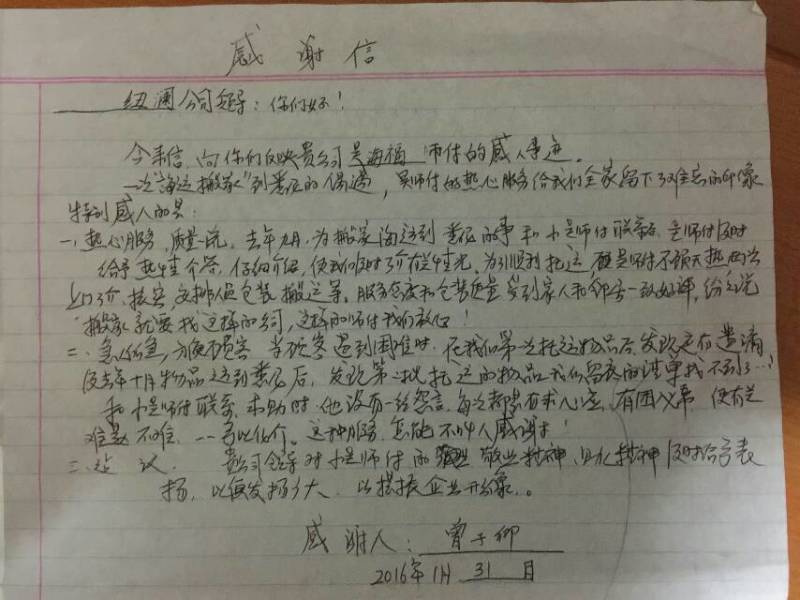 感谢信
纽澜公司领导：你们好！
今来信向你们反映贵公司吴海福师付的感人事迹。
一次"海运搬家"到悉尼的偶遇，吴师付的热心服务给我们全家留下了难忘的印像
特别感人的是：
一、热心服务，质量一流。去年九月，为搬家海运到悉尼的事和小吴师付联系，吴师付及时
给予热情介答，仔细介绍，使我们及时了介有关情况。为了顺利托运，吴师付不顾天热两次
上门了介、接客，安排人员包装、搬运等。服务态度和包装质量受到家人和邻居一致好评，纷纷说
"搬家就要找这样的公司，这样的师付我们放心！
二、急人所急，方便顾客。当顾客遇到困难时，在我们第一次托运物品后，发现定有遗漏
及去年十月物品运到悉尼后，发现第二批托运的物品我们留底的清单找不到了…！
和小吴师付联系求助时，他没有一丝怨言，每次都是有求必应，有困必帮，使有关
难题不住，一一予以化介。这种服务，怎能不叫人感谢！
三、建议。贵公司领导对小吴师付的敬业精神、困难精神及时给予表
扬，以便发扬广大，以提振企业形象。
感谢人：曾子仰
2016年1月31日